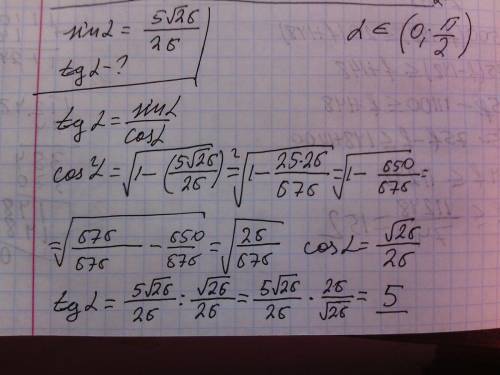 sin α = 5√26/26    α ∈ (0; π/2)
tg α - ?
tg α = sin α/cos α
cos α = √(1 - (5√26/26)²) = √(1 - 25·26/676) = √(1 - 650/676) =
= √(676/676 - 650/676) = √(26/676)    cos α = √26/26
tg α = 5√26/26 : √26/26 = 5√26/26 · 26/√26 = 5